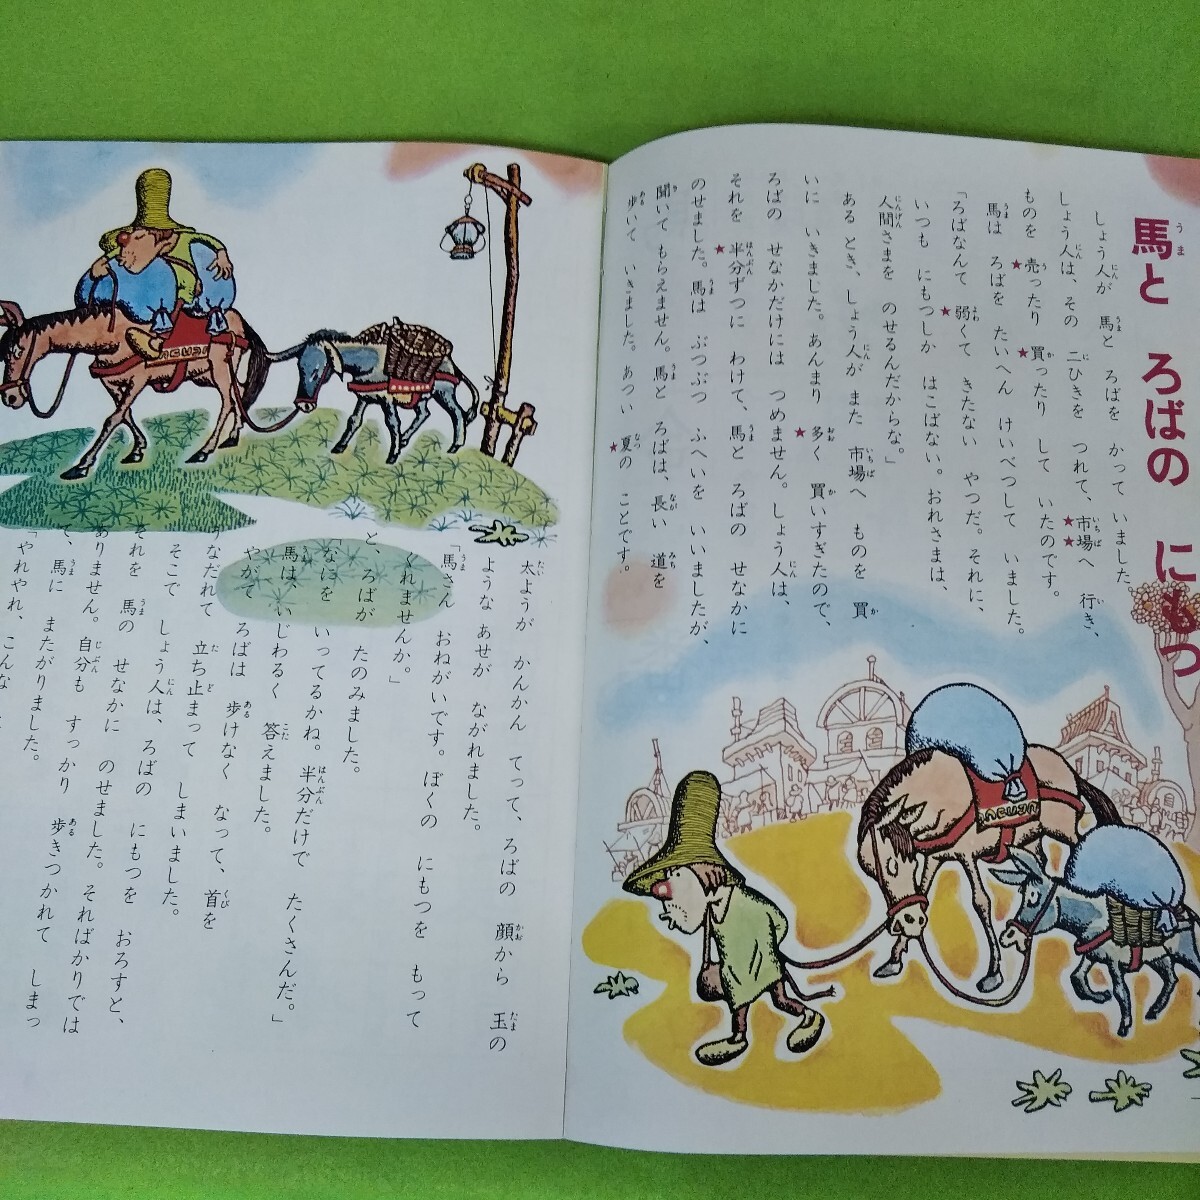 馬と ろばの にもつ
しょう人が 馬と ろばを かって いました
しょう人は、その 二ひきを つれて、市場へ 行き、
ものを 売ったり 買ったり して いたのです。
馬は ろばを たいへん けいべつして いました。
「ろばなんて 弱くて きたない やつだ。それに、
いつも にもつしか はこばない。おれさまは、
人間さまを のせるんだからな。」
ある とき、しょう人が また 市場へ ものを 買
いに いきました。あんまり 多く 買いすぎたので、
ろばの せなかだけには つめません。しょう人は、
それを 半分ずつに わけて、馬と ろばの せなかに
のせました。馬は ぶつぶつ ふへいを いいましたが、
聞いて もらえません。馬と ろばは、長い 道を
歩いて いきました。あつい 夏の ことです。
太ようが かんかん てって、ろばの 顔から 玉の
ような あせが ながれました。
「馬さん おねがいです。ぼくの にもつを もって
くれませんか。」
と、ろばが たのみました。
「なにを いってるかね。半分だけで たくさんだ。」
馬は、いじわるく 答えました。
やがて ろばは 歩けなく なって、首を
うなだれて 立ち止まって しまいました。
そこで しょう人は、ろばの にもつを おろすと、
それを 馬の せなかに のせました。そればかりでは
ありません。自分も すっかり 歩きつかれて しまっ
て、馬に またがりました。
「やれやれ、こんな